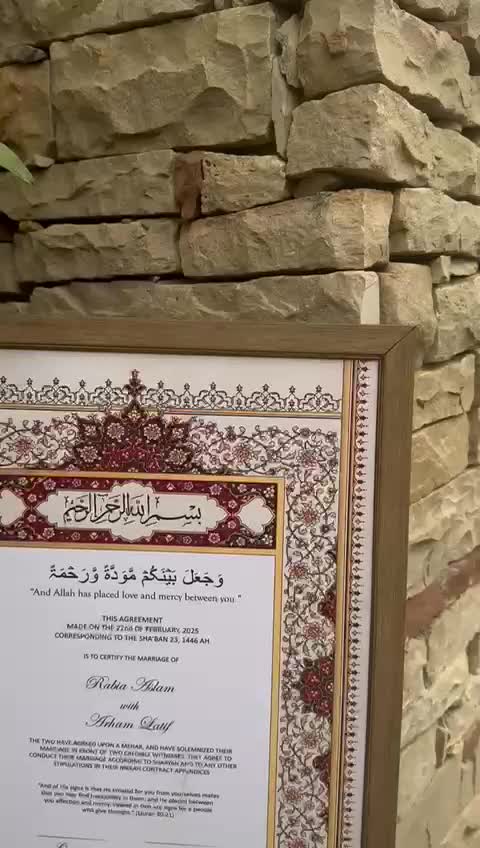 بسم الله الرحمن الرحيم
وَجَعَلَ بَيْنَكُمْ مَّوَدَّةً وَّرَحْمَةً
"And Allah has placed love and mercy between you."
THIS AGREEMENT
MADE ON THE 22ND OF FEBRUARY, 2025
CORRESPONDING TO THE SHA'BAN 23, 1446 AH
IS TO CERTIFY THE MARRIAGE OF
Rabia Aslam
with
Arham Latif
THE TWO HAVE AGREED UPON A MEHAR, AND HAVE SOLEMNIZED THEIR
MARRIAGE IN FRONT OF TWO CREDIBLE WITNESSES. THEY AGREE TO
CONDUCT THEIR MARRIAGE ACCORDING TO SHARIAH AND TO ANY OTHER
STIPULATIONS IN THEIR NIKKAH CONTRACT APPENDICES
"And of His signs is that He created for you from yourselves mates
that you may find tranquility in them; and He placed between
you affection and mercy. Indeed in that are signs for a people
who give thought." (Quran 30:21)